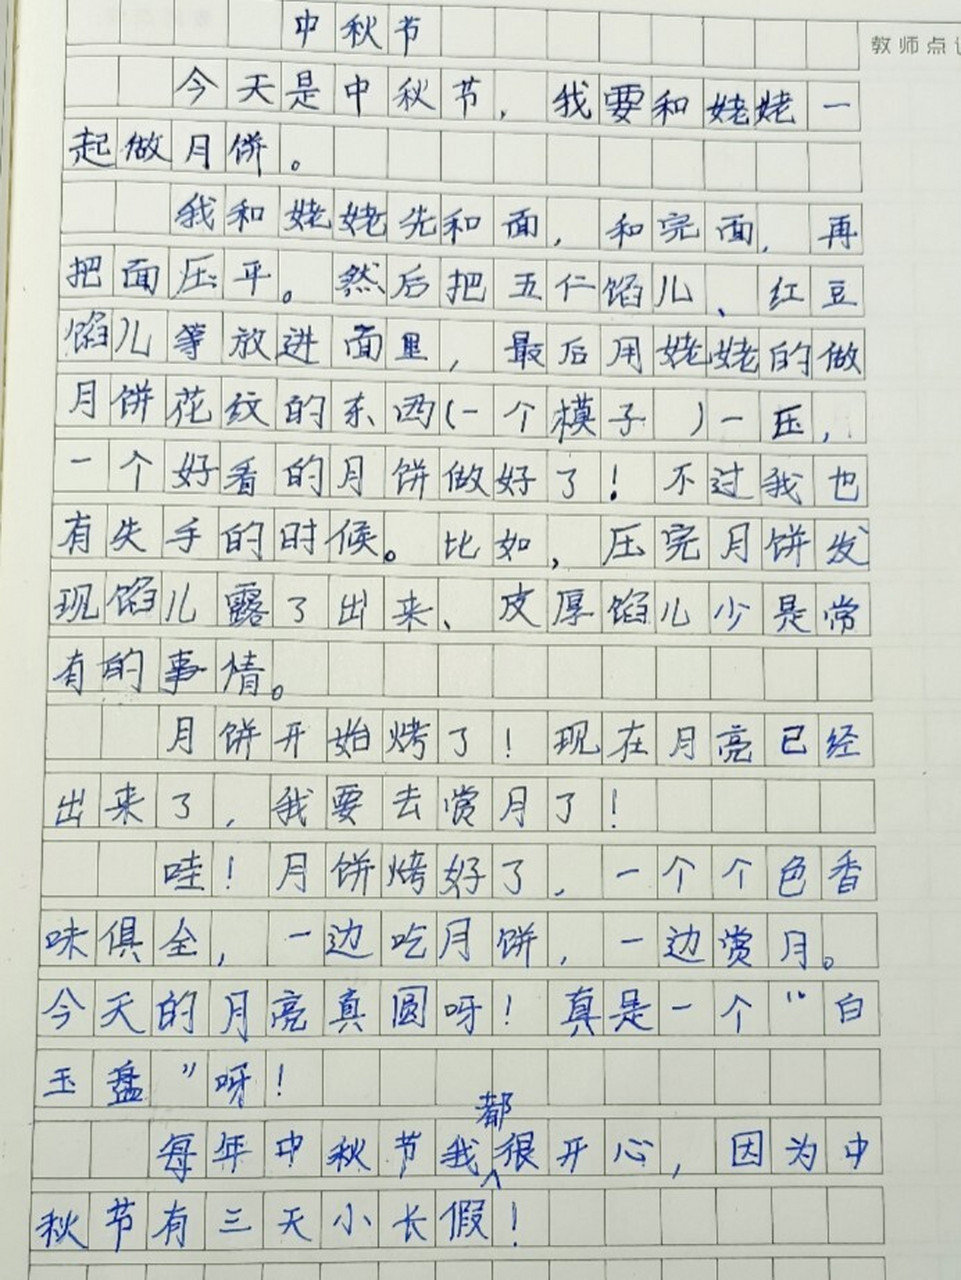 中秋节
教师点
今天是中秋节，我要和姥姥一
起做月饼。
我和姥姥先和面，和完面，再
把面压平。然后把五仁馅儿、红豆
馅儿等放进面里，最后用姥姥的做
月饼花纹的东西(一个模子)一压，
一个好看的月饼做好了！不过我也
有失手的时候。比如，压完月饼发
现馅儿露了出来、皮厚馅儿少是常
有的事情。
月饼开始烤了！现在月亮已经
出来了，我要去赏月了！
哇！月饼烤好了，一个个色香
味俱全，一边吃月饼，一边赏月。
今天的月亮真圆呀！真是一个“白
玉盘”呀！
每年中秋节我都很开心，因为中
秋节有三天小长假！